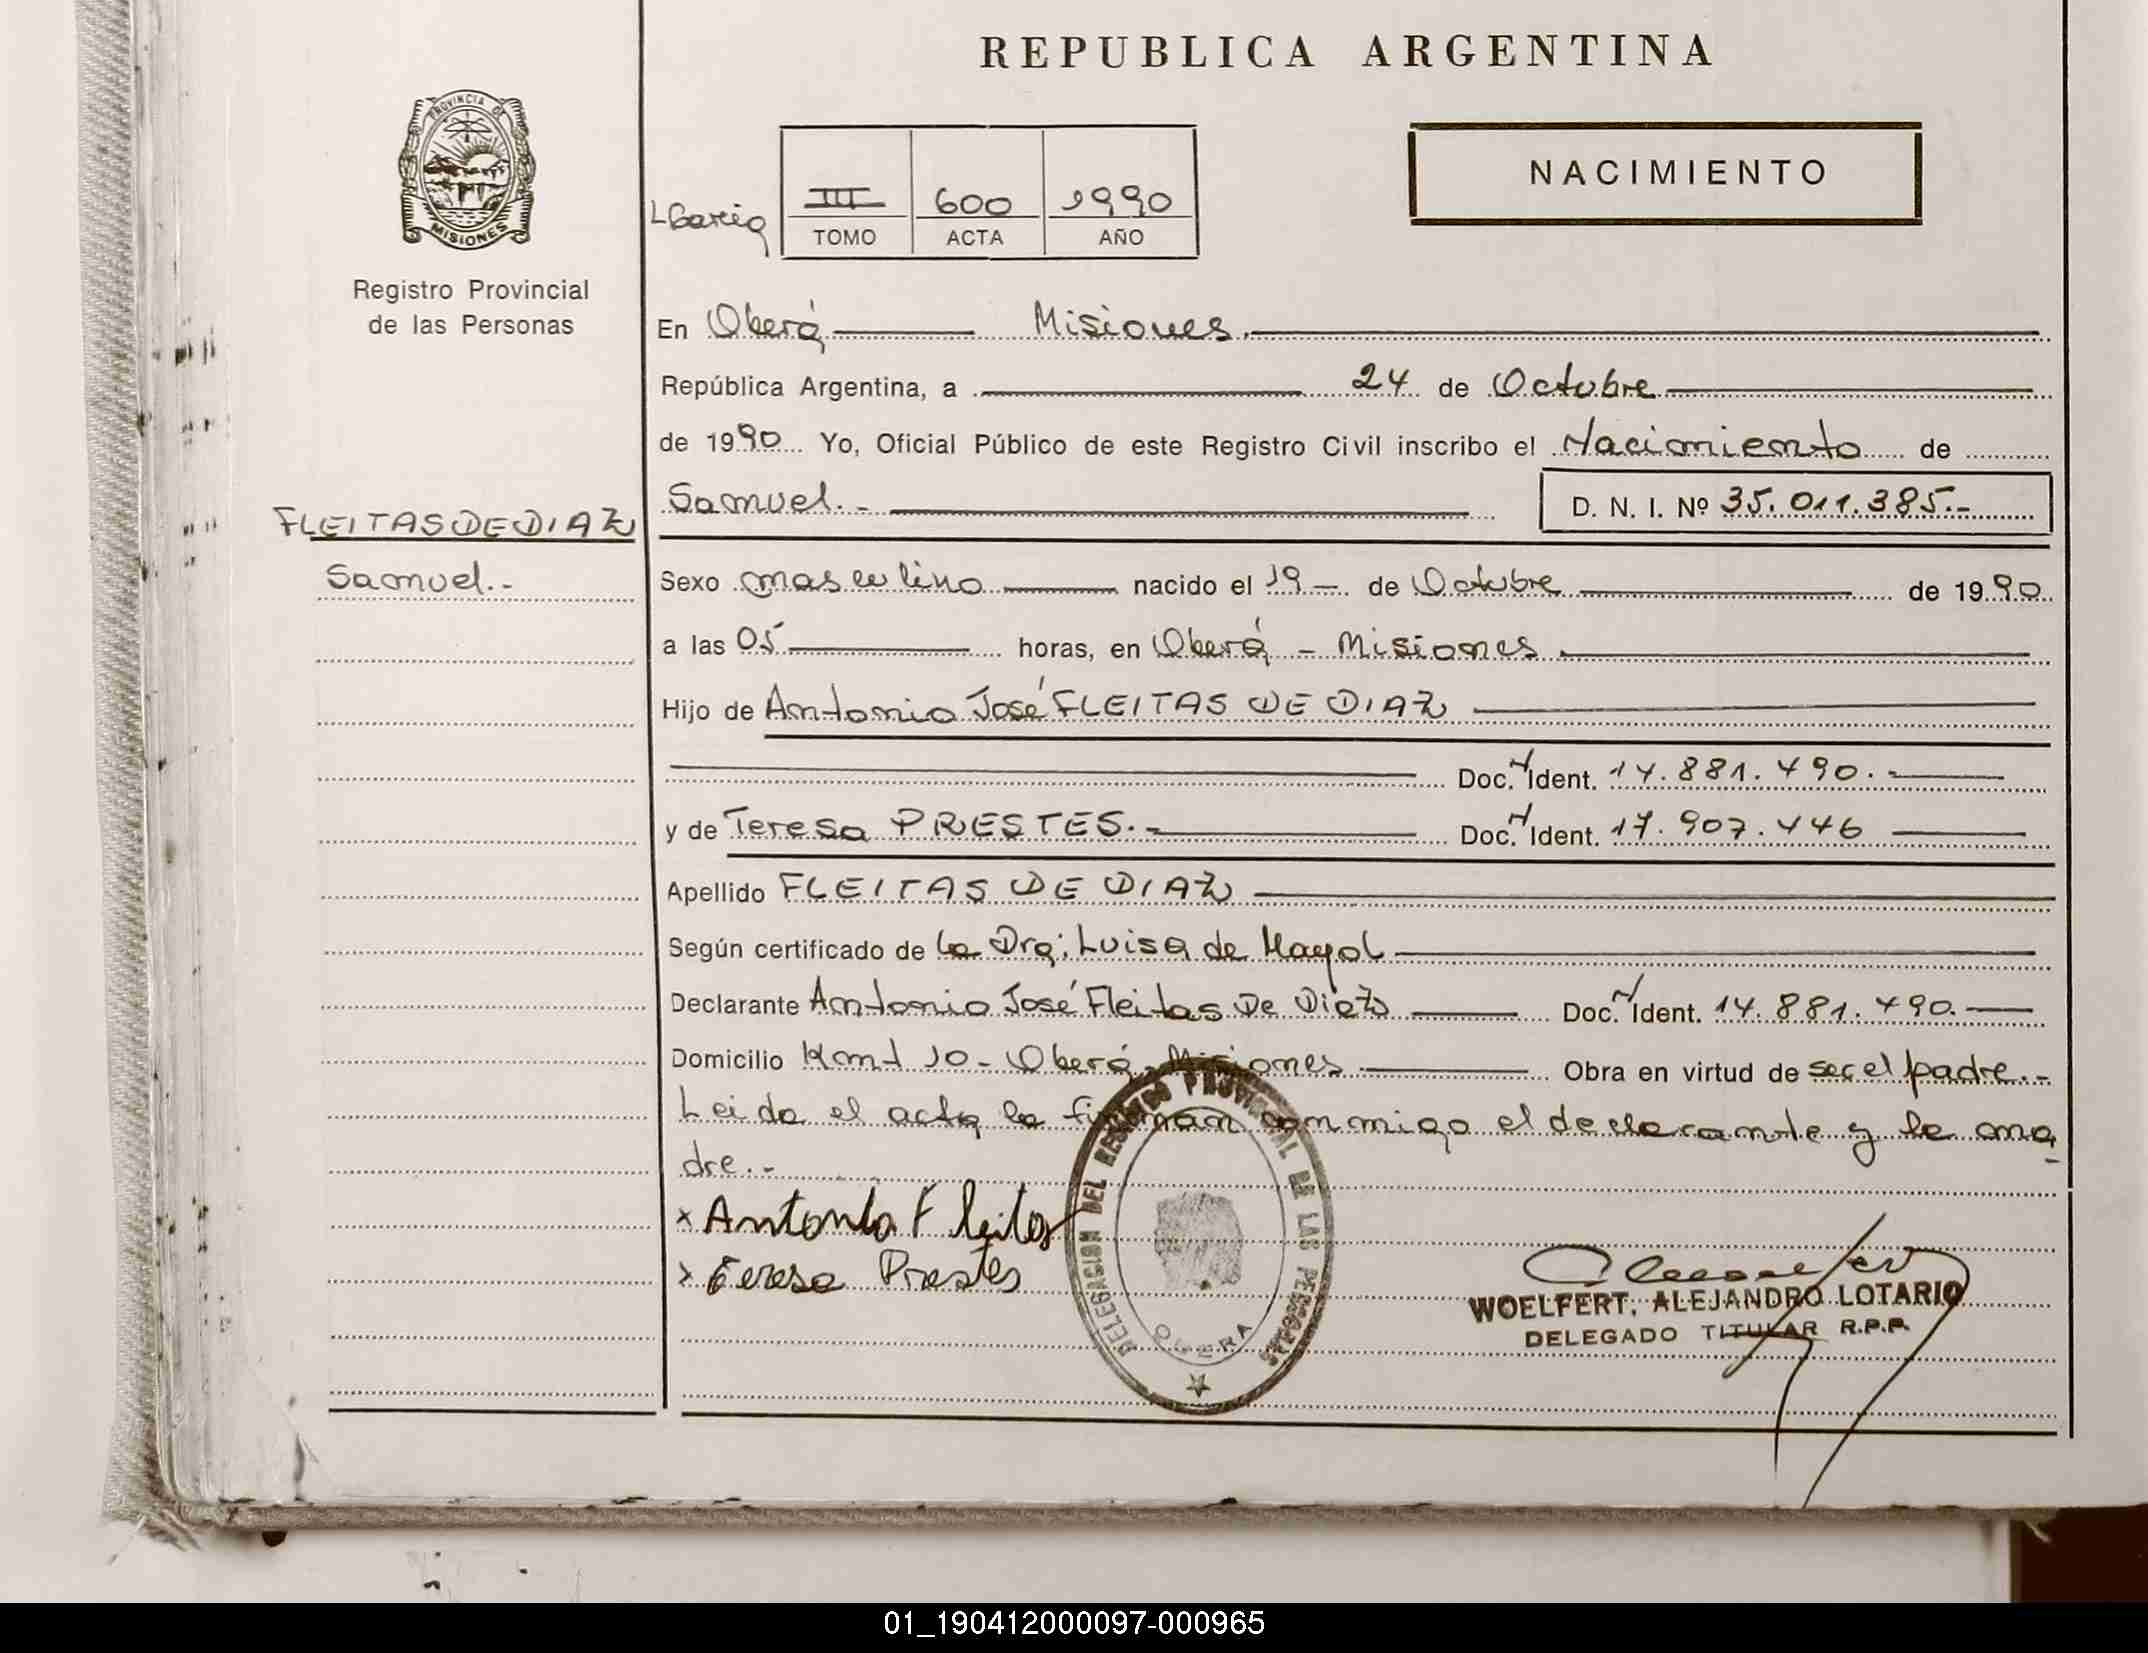 REPUBLICA ARGENTINA
PROVINCIA DE
MISIONES
Registro Provincial
de las Personas
NACIMIENTO
III 600 1990
TOMO ACTA AÑO
En Oberá Misiones.
República Argentina, a 24 de Octubre
de 1990 Yo, Oficial Público de este Registro Civil inscribo el Nacimiento de
Samuel.- D. N. I. Nº 35.011.385.-
FLEITAS DE DIAZ
Samuel.-
Sexo masculino nacido el 19 de Octubre de 1990
a las 05 horas, en Oberá - Misiones.
Hijo de Antonio José FLEITAS DE DIAZ
Doc. Ident. 14.881.490.-
y de Teresa PRESTES.- Doc. Ident. 17.907.446
Apellido FLEITAS DE DIAZ
Según certificado de la Dra; Luisa de Mayol
Declarante Antonio José Fleitas De Diaz Doc. Ident. 14.881.490.
Domicilio Kmt 10 - Oberá, Misiones Obra en virtud de ser el padre.-
Leida el acta la firman conmigo el declarante y la ma
dre.-
x Antonio Fleitas
Teresa Prestes
DELEGACION DEL REGISTRO PROVINCIAL DE LAS PERSONAS
OBERA
WOELFERT, ALEJANDRO LOTARIO
DELEGADO TITULAR R.P.P.
01_190412000097-000965